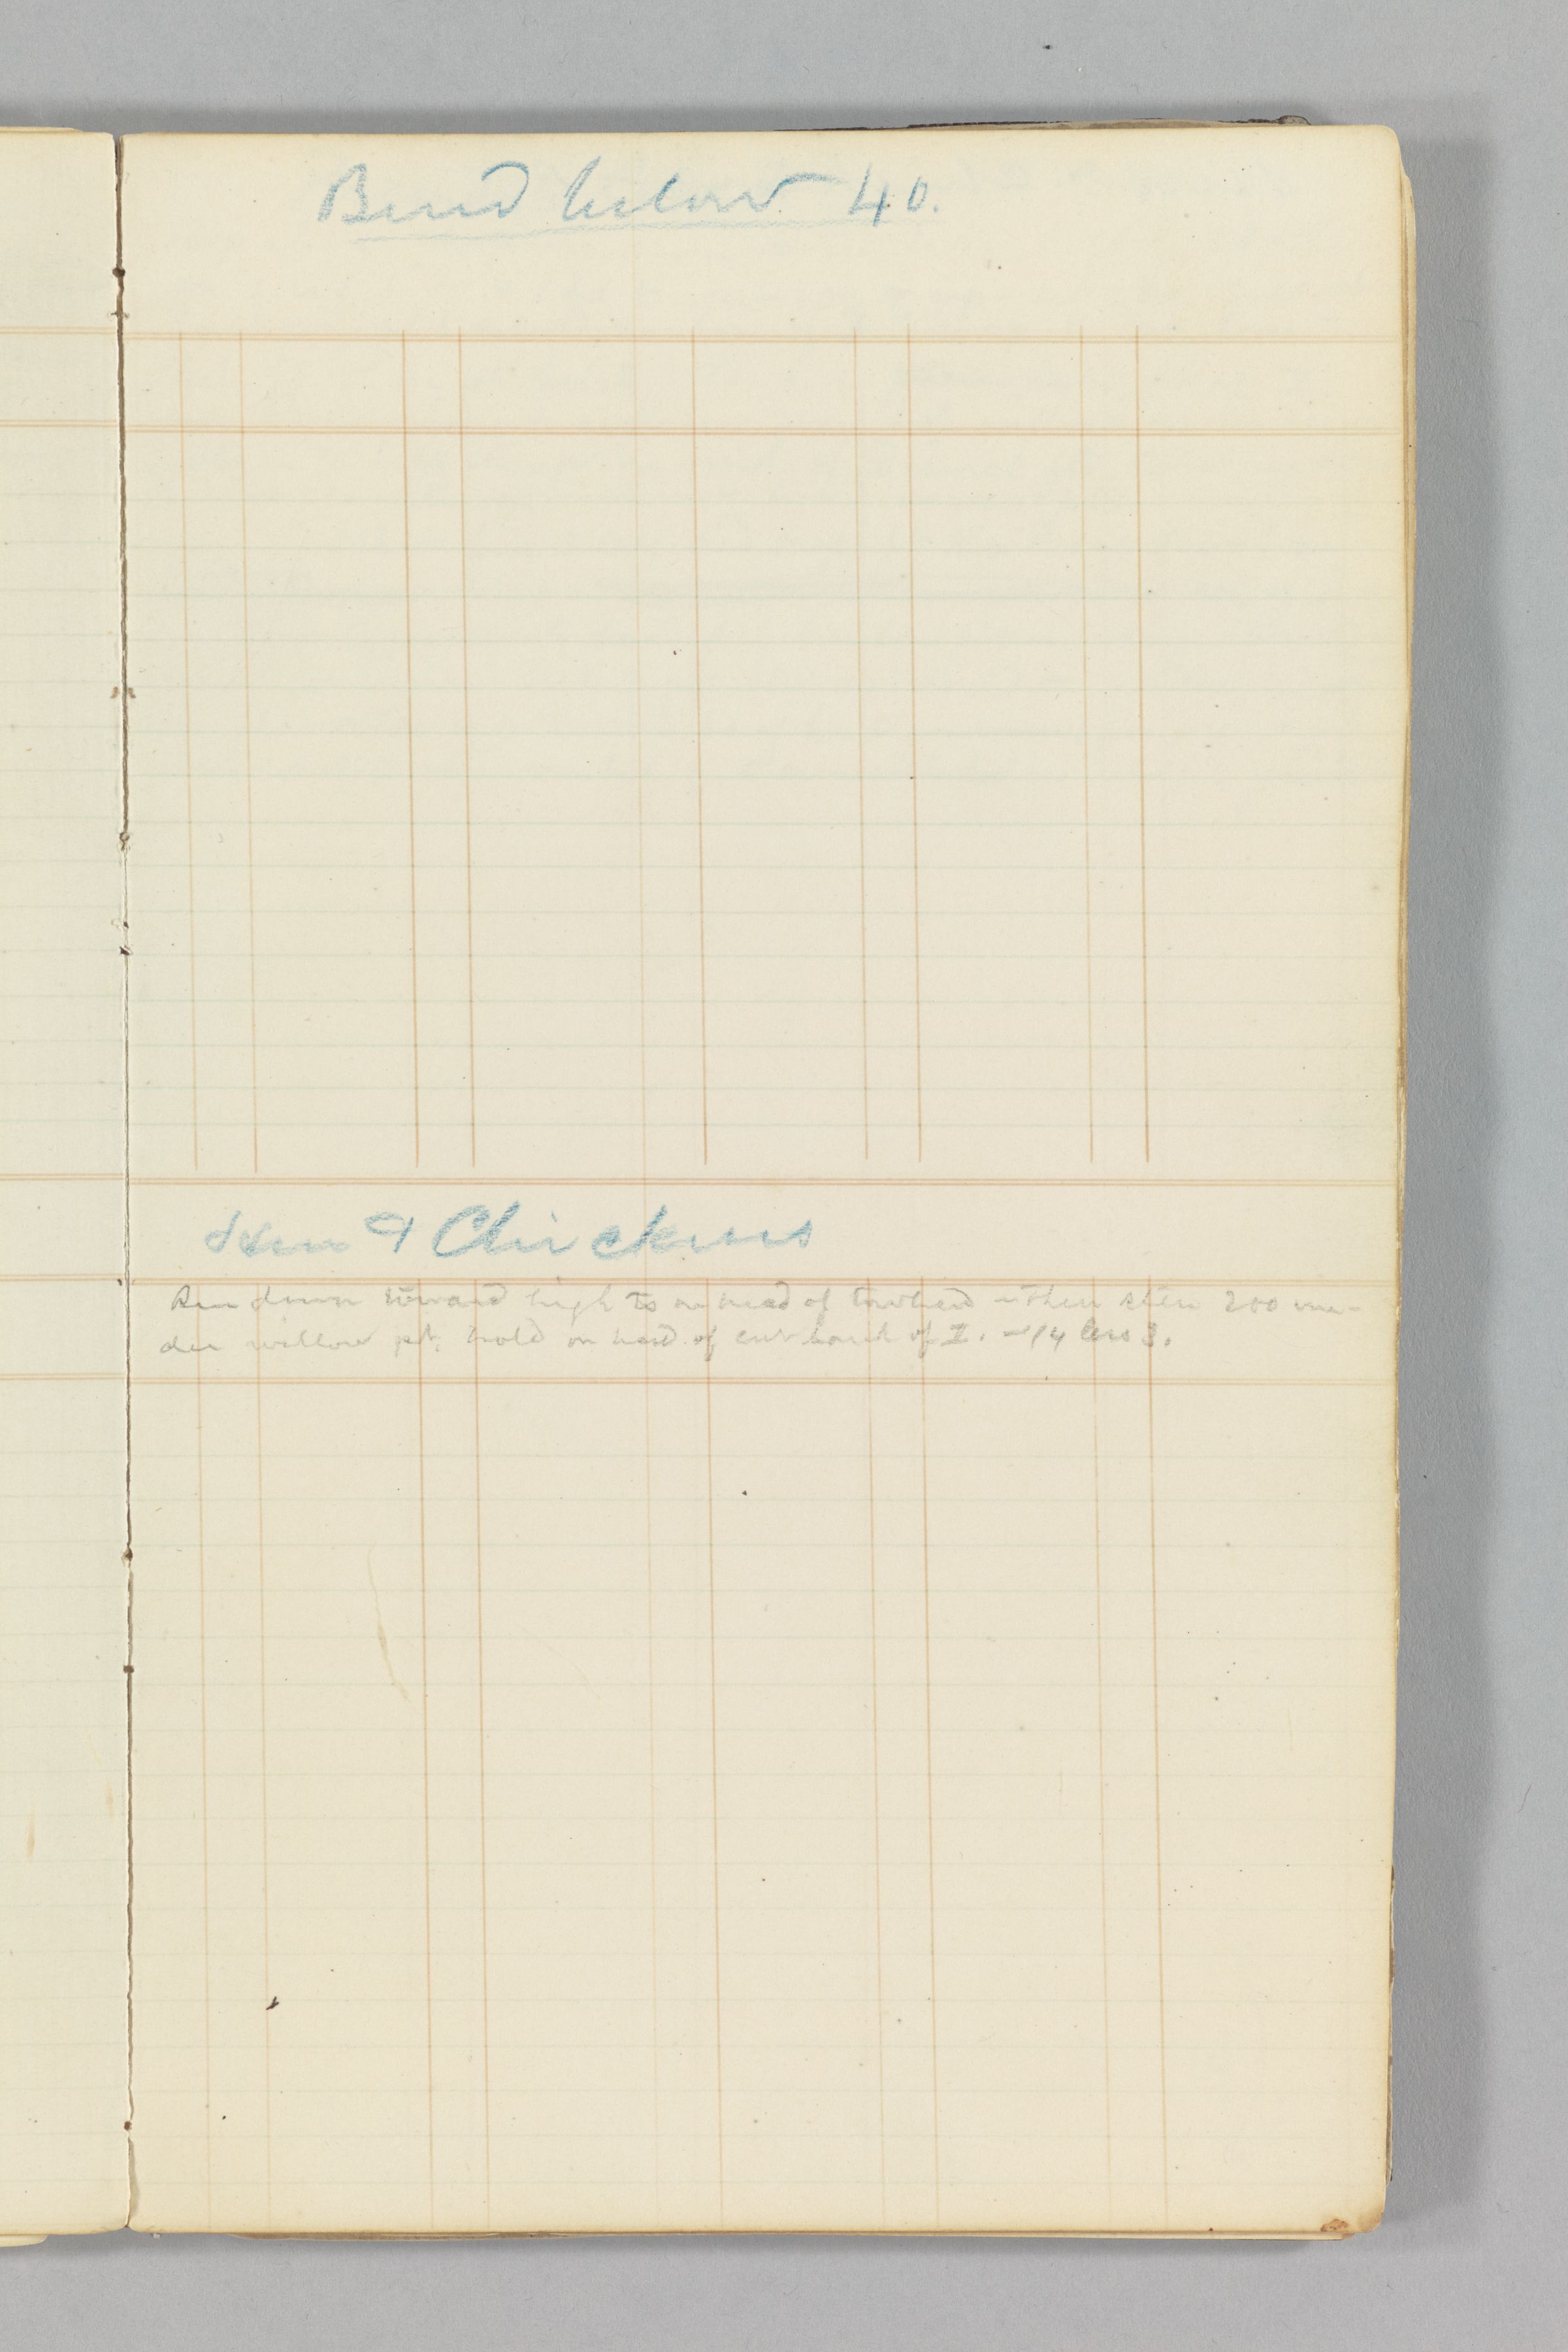 Bend below 40.
Hen & Chickens
Run down toward high to on head of towhead — then stern 200 un-
der willow pt. hold on head of cut bank of I. — 1/4 less 3.